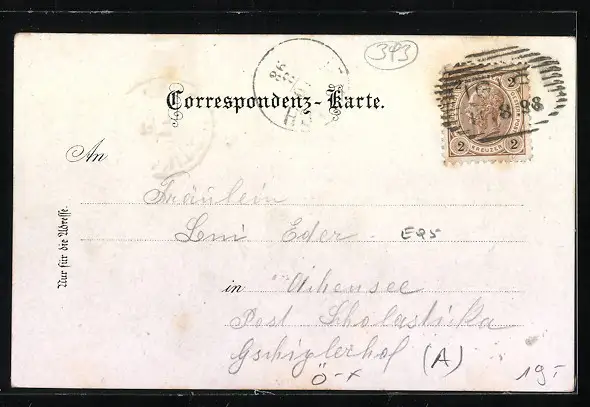 343
Correspondenz-Karte.
2 2
2 KREUZER 2
8 98
An
Fräulein
Leni Eder. E25
in Achensee
Post Scholastika
Gschiglerhof (A)
Ö-x
19,-
Nur für die Adresse.